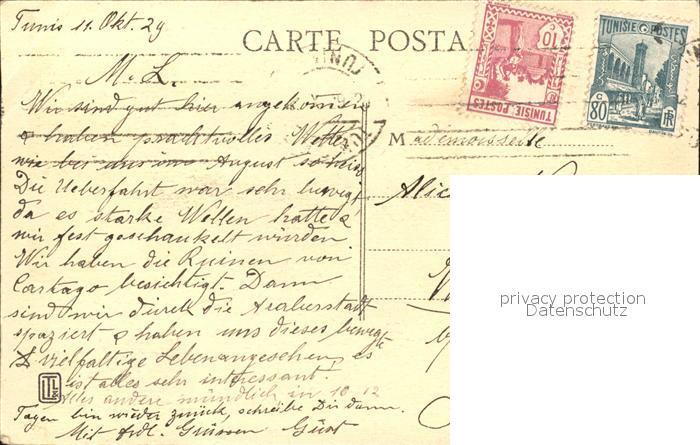 Tunis 11. Okt. 29
CARTE POSTA
M. L.
Wir sind gut hier angekommen
& haben prachtvolles Wetter
wie bei uns im August
Die Ueberfahrt war sehr bewegt
da es starke Wellen hatte &
wir fest geschaukelt wurden
Wir haben die Ruinen von
Cartago besichtigt. Dann
sind wir durch die Araberstadt
spaziert & haben uns dieses bewegte
& vielfaltige Leben angesehen, es
ist alles sehr interessant.
Alles andere mündlich in 10-12
Tagen bin wieder zurück, schreibe Dir dann.
Mit frdl. Grüssen
Mademoiselle
TUNISIE POSTES
10
TUNISIE POSTES
80
RF
privacy protection
Datenschutz